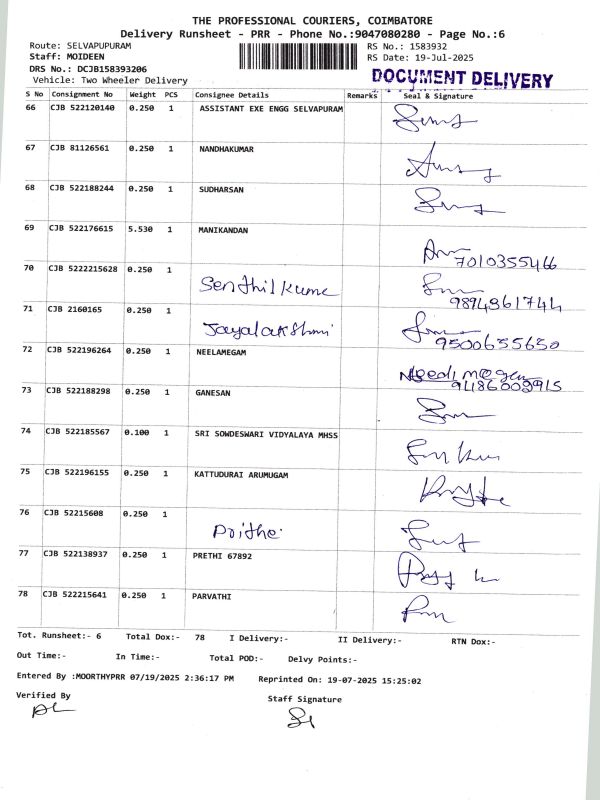 THE PROFESSIONAL COURIERS, COIMBATORE
Delivery Runsheet - PRR - Phone No.:9047080280 - Page No.:6
Route: SELVAPUPURAM
Staff: MOIDEEN
DRS No.: DCJB158393206
Vehicle: Two Wheeler Delivery
RS No.: 1583932
RS Date: 19-Jul-2025
DOCUMENT DELIVERY
S No Consignment No Weight PCS Consignee Details Remarks Seal & Signature
66 CJB 522120140 0.250 1 ASSISTANT EXE ENGG SELVAPURAM
67 CJB 81126561 0.250 1 NANDHAKUMAR
68 CJB 522188244 0.250 1 SUDHARSAN
69 CJB 522176615 5.530 1 MANIKANDAN
7010355466
70 CJB 5222215628 0.250 1
Senthil kume
9894361744
71 CJB 2160165 0.250 1
Jayalakshmi
9500655650
72 CJB 522196264 0.250 1 NEELAMEGAM
73 CJB 522188298 0.250 1 GANESAN
74 CJB 522185567 0.100 1 SRI SOWDESWARI VIDYALAYA MHSS
75 CJB 522196155 0.250 1 KATTUDURAI ARUMUGAM
76 CJB 52215608 0.250 1
Prithe
77 CJB 522138937 0.250 1 PRETHI 67892
78 CJB 522215641 0.250 1 PARVATHI
Tot. Runsheet:- 6 Total Dox:- 78 I Delivery:- II Delivery:- RTN Dox:-
Out Time:- In Time:- Total POD:- Delvy Points:-
Entered By :MOORTHYPRR 07/19/2025 2:36:17 PM Reprinted On: 19-07-2025 15:25:02
Verified By
Staff Signature